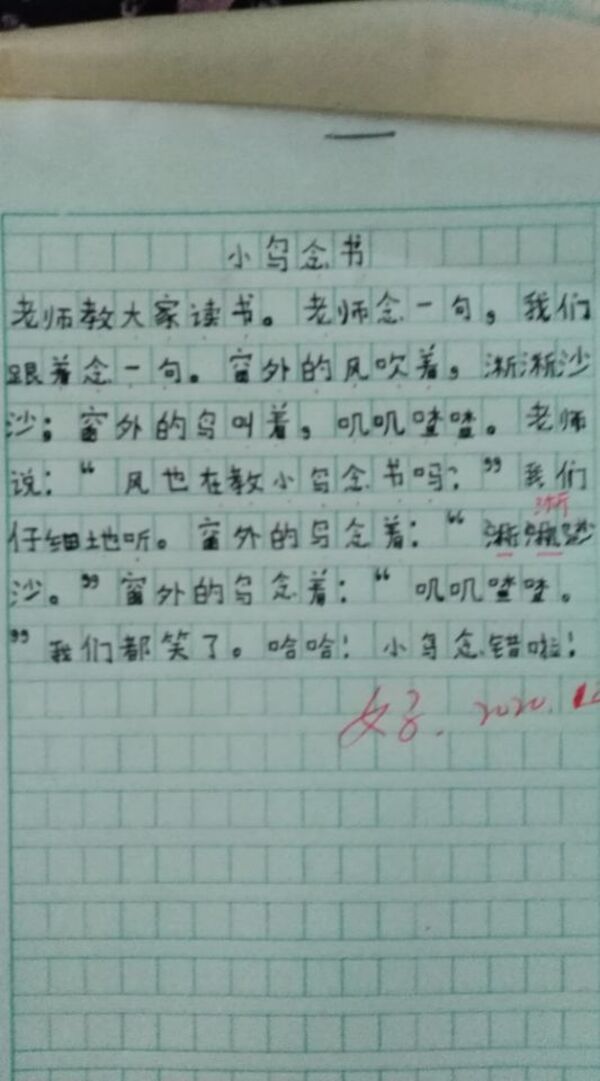 小鸟念书
老师教大家读书。老师念一句，我们
跟着念一句。窗外的风吹着，淅淅沙
沙；窗外的鸟叫着，叽叽喳喳。老师
说：“风也在教小鸟念书吗？”我们
仔细地听。窗外的鸟念着：“淅淅沙
淅
沙。”窗外的鸟念着：“叽叽喳喳。
”我们都笑了。哈哈！小鸟念错啦！
好. 2020.